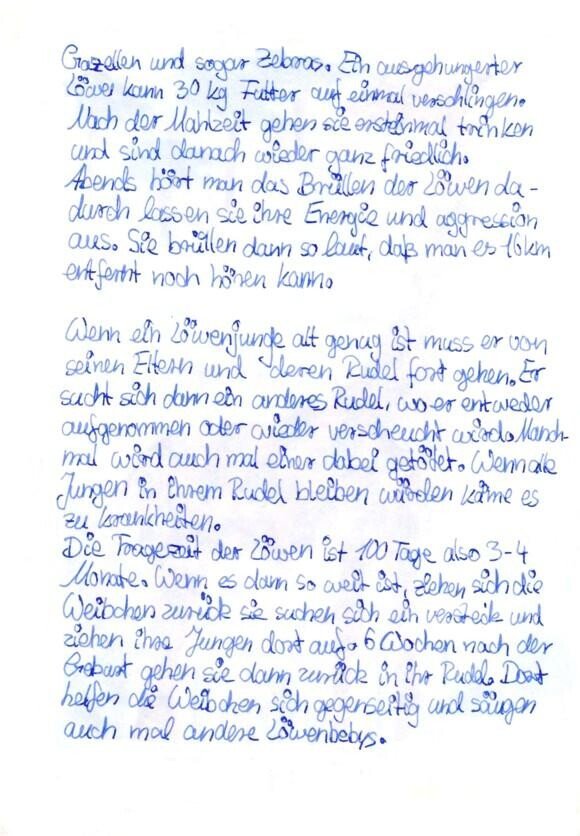 Gazellen und sogar Zebras. Ein ausgehungerter
Löwe kann 30 kg Futter auf einmal verschlingen.
Nach der Mahlzeit gehen sie ersteinmal trinken
und sind danach wieder ganz friedlich.
Abends hört man das Brüllen der Löwen da-
durch lassen sie ihre Energie und aggression
aus. Sie brüllen dann so laut, daß man es 16 km
entfernt noch hören kann.
Wenn ein Löwenjunge alt genug ist muss er von
seinen Eltern und deren Rudel fort gehen. Er
sucht sich dann ein anderes Rudel, wo er entweder
aufgenommen oder wieder verscheucht wird. Manch-
mal wird auch mal einer dabei getötet. Wenn alle
Jungen in ihrem Rudel bleiben würden käme es
zu krankheiten.
Die Tragezeit der Löwen ist 100 Tage also 3-4
Monate. Wenn es dann so weit ist, ziehen sich die
Weibchen zurück sie suchen sich ein versteck und
ziehen ihre Jungen dort auf. 6 Wochen nach der
Geburt gehen sie dann zurück in ihr Rudel. Dort
helfen die Weibchen sich gegenseitig und säugen
auch mal andere Löwenbebys.